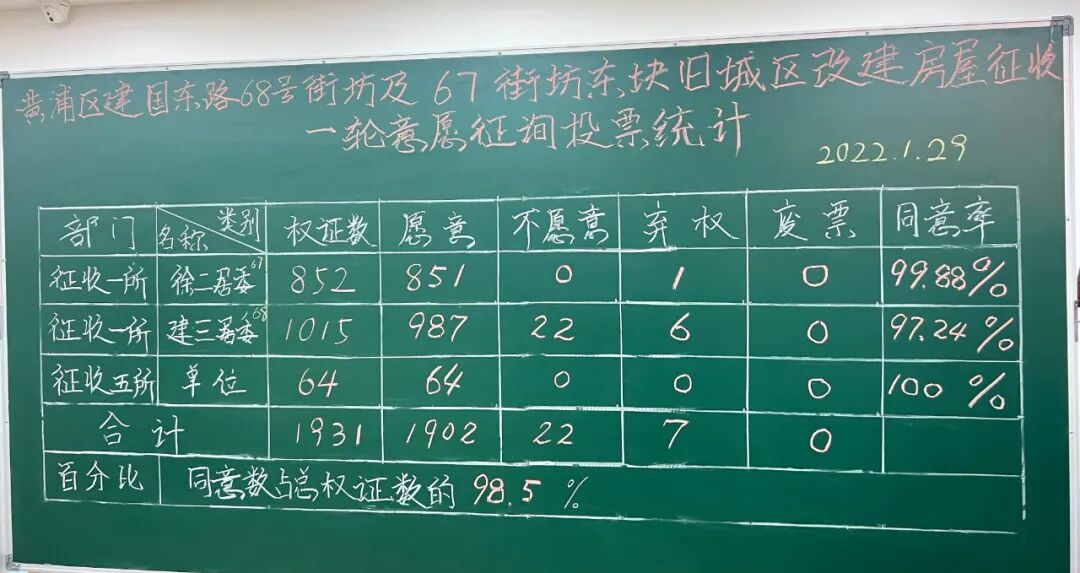 黄浦区建国东路68号街坊及67街坊东块旧城区改建房屋征收
一轮意愿征询投票统计
2022.1.29
部门 类别 名称 权证数 愿意 不愿意 弃权 废票 同意率
征收一所 徐二居委67 852 851 0 1 0 99.88%
征收一所 建三居委68 1015 987 22 6 0 97.24%
征收五所 单位 64 64 0 0 0 100%
合计 1931 1902 22 7 0
百分比 同意数占总权证数的98.5%